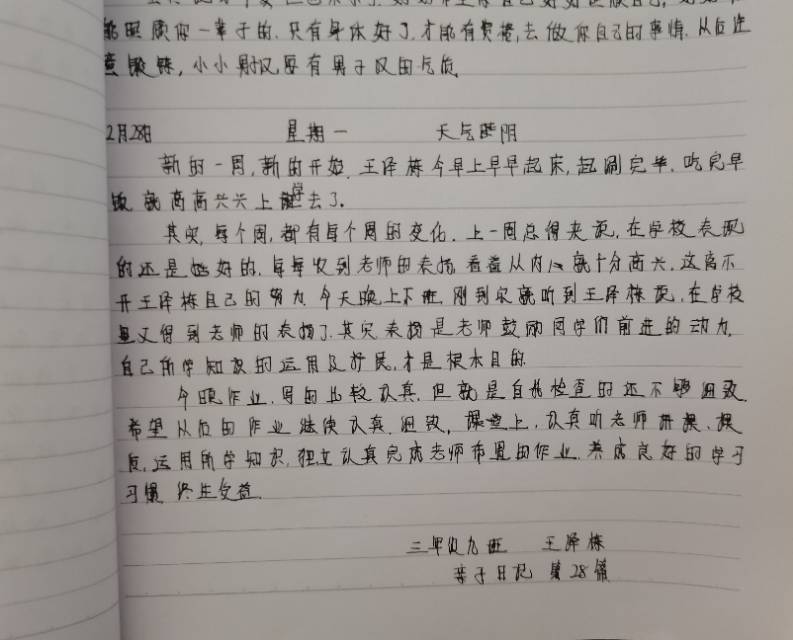 能照顾你一辈子的.只有身体好了.才能有资格,去做你自己的事情.从后注
意锻炼,小小男子汉要有男子汉的气质.
2月28日 星期一 天气晴阴
新的一周,新的开始.王泽栋今早上早早起床,起涮完毕.吃完早
饭就高高兴兴上学去了.
其实,每个周,都有每个周的变化.上一周总得来说,在学校表现
的还是挺好的.每每收到老师的表扬看着从内心就十分高兴.这离不
开王泽栋自己的努力.今天晚上下班.刚到家就听到王泽栋说,在学校
里又得到老师的表扬了.其实表扬是老师鼓励同学们前进的动力,
自己所学知识的运用及好民,才是根本目的.
今晚作业.写的比较认真.但就是自我检查的还不够细致.
希望从后的作业继续认真.细致,课堂上,认真听老师讲课.课
后,运用所学知识,独立认真完成老师布置的作业.养成良好的学习
习惯 终生受益.
三年级九班 王泽栋
亲子日记 第28篇